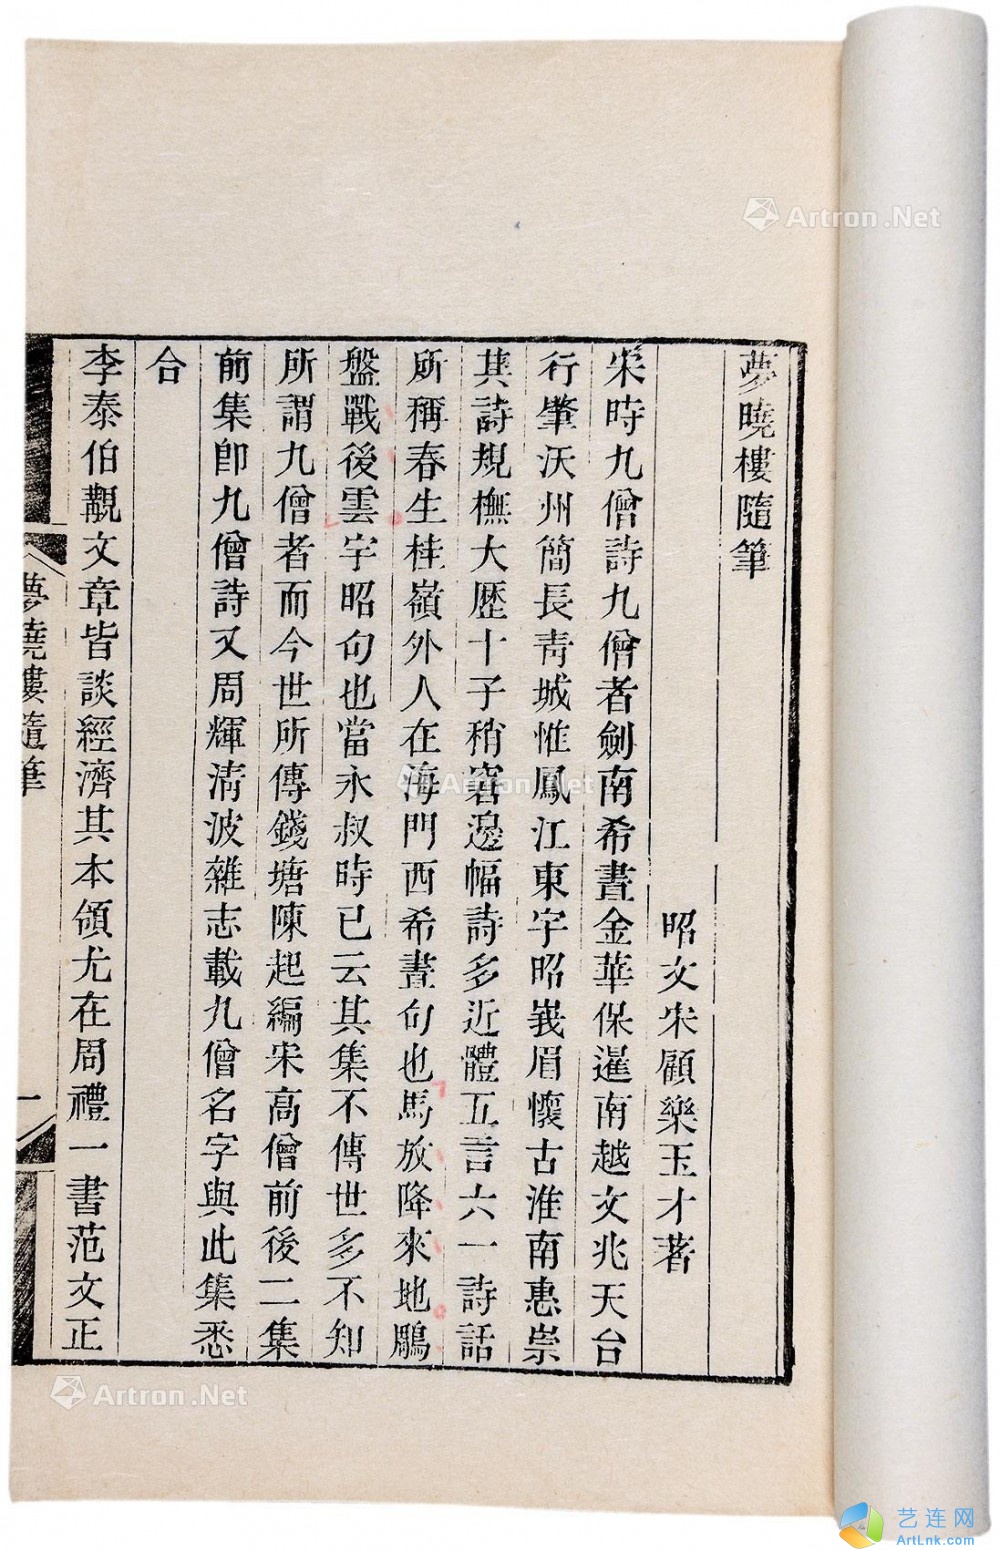 夢曉樓隨筆
昭文宋顧樂玉才著
宋時九僧詩九僧者劍南希晝金華保暹南越文兆天台
行肇沃州簡長靑城惟鳳江東宇昭峩眉懷古淮南惠崇
其詩規橅大歷十子稍窘邊幅詩多近體五言六一詩話
所稱春生桂嶺外人在海門西希晝句也馬放降來地鵰
盤戰後雲宇昭句也當永叔時已云其集不傳世多不知
所謂九僧者而今世所傳錢塘陳起編宋高僧前後二集
前集卽九僧詩又周輝淸波雜志載九僧名字與此集悉
合
李泰伯覯文章皆談經濟其本領尤在周禮一書范文正
夢曉樓隨筆
一
Artron.Net
Artron.Net
Artron.Net
艺连网
ArtLnk.com